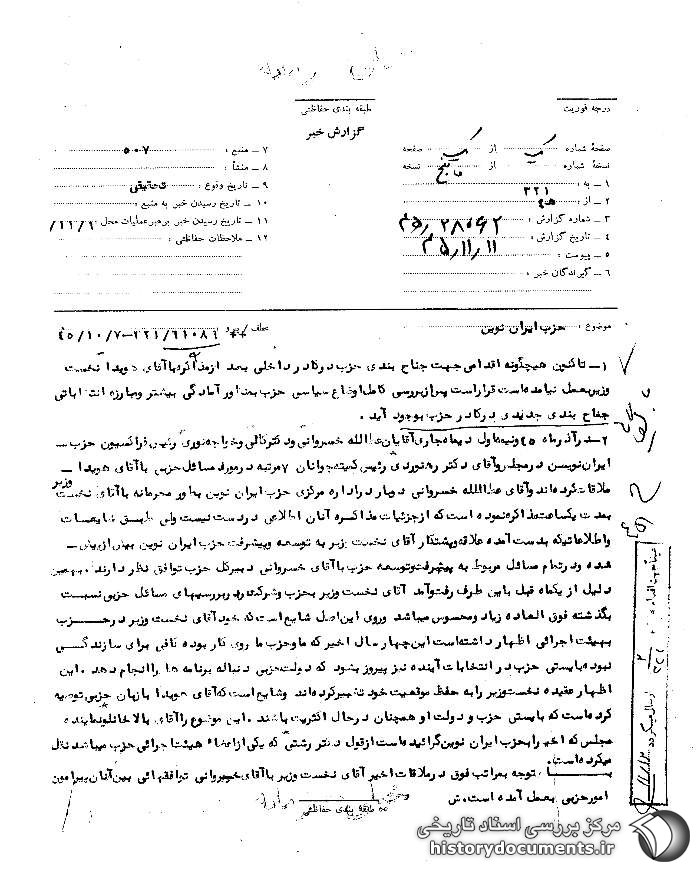 درجه فوریت
طبقه بندی حفاظتی
گزارش خبر
صفحهٔ شماره یک از یک صفحه
نسخهٔ شماره از پنج نسخه
۱ - به : ۳۲۱
۲ - از :
۳ - شماره گزارش :
۴ - تاریخ گزارش : ۴۵٫۱۱٫۱۱
۵ - پیوست :
۶ - گیرندگان خبر :
۷ - منبع : ۵۰۷
۸ - منشأ :
۹ - تاریخ وقوع : تحقیقی
۱۰ - تاریخ رسیدن خبر به منبع :
۱۱ - تاریخ رسیدن خبر برهبر عملیات محل
۱۲ - ملاحظات حفاظتی :
موضوع : حزب ایران نوین
۱- تاکنون هیچگونه اقدامی جهت جناح بندی حزب در کادر داخلی بعد از مذاکره با آقای هویدا نخست
وزیر بعمل نیامده است قرار است پس از بررسی کامل اوضاع سیاسی حزب بمنظور آمادگی بیشتر و مبارزه انتخاباتی
جناح بندی جدیدی در کادر حزب بوجود آید .
۲- در آذر ماه ۴۵ و نیمه اول دیماه جاری آقایان عطاالله خسروانی و دکتر کلالی و خواجه نوری رئیس فراکسیون حزب
ایران نوین در مجلس و آقای دکتر رهنوردی رئیس کمیته جوانان ۷ مرتبه در مورد مسائل حزبی با آقای هویدا
ملاقات کرده اند و آقای عطاالله خسروانی دوبار در اداره مرکزی حزب ایران نوین بطور محرمانه با آقای نخست وزیر
بمدت یکساعت مذاکره نموده است که از جزئیات مذاکره آنان اطلاعی در دست نیست ولی طبق شایعات
و اطلاعاتیکه بدست آمده علاقه و پشتکار آقای نخست وزیر به توسعه و پیشرفت حزب ایران نوین بیش از پیش
شده و در تمام مسائل مربوط به پیشرفت و توسعه حزب با آقای خسروانی دبیر کل حزب توافق نظر دارند . بهمین
دلیل از یکماه قبل باین طرف رفت و آمد آقای نخست وزیر بحزب و شرکت در بررسیهای مسائل حزبی نسبت
بگذشته فوق العاده زیاد و محسوس میباشد و روی این اصل شایع است که خود آقای نخست وزیر در حزب
بهیئت اجرائی اظهار داشته است این چهار سال اخیر که ما و حزب ما روی کار بوده کافی برای سازندگی
نبوده بایستی حزب در انتخابات آینده نیز پیروز بشود که دولت حزبی دنباله برنامه ها را انجام دهد . این
اظهار عقیده نخست وزیر را به حفظ موقعیت خود تعبیر کرده اند و شایع است که آقای هویدا بارهای حزبی توصیه
کرده است که بایستی حزب و دولت او همچنان در حال اکثریت باشند . این موضوع را آقای بالاخانلو نماینده
مجلس که اخیرا بحزب ایران نوین گرائیده است از قول دکتر رشتی که یکی از اعضاء هیئت اجرائی حزب میباشد نقل
میکرده است .
با توجه بمراتب فوق در ملاقات اخیر آقای نخست وزیر با آقای خسروانی توافقهائی بین آنان پیرامون
امور حزبی بعمل آمده است . ش
طبقه بندی حفاظتی
مرکز بررسی اسناد تاریخی
historydocuments.ir